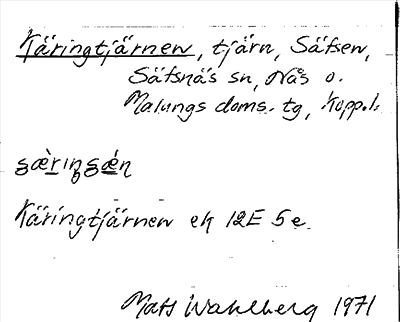 Käringtjärnen, tjärn, Säfsen,
Säfsnäs sn, Nås o.
Malungs doms. tg, Kopp. l.
Käringtjärnen ek 12E 5e
Mats Wahlberg 1971